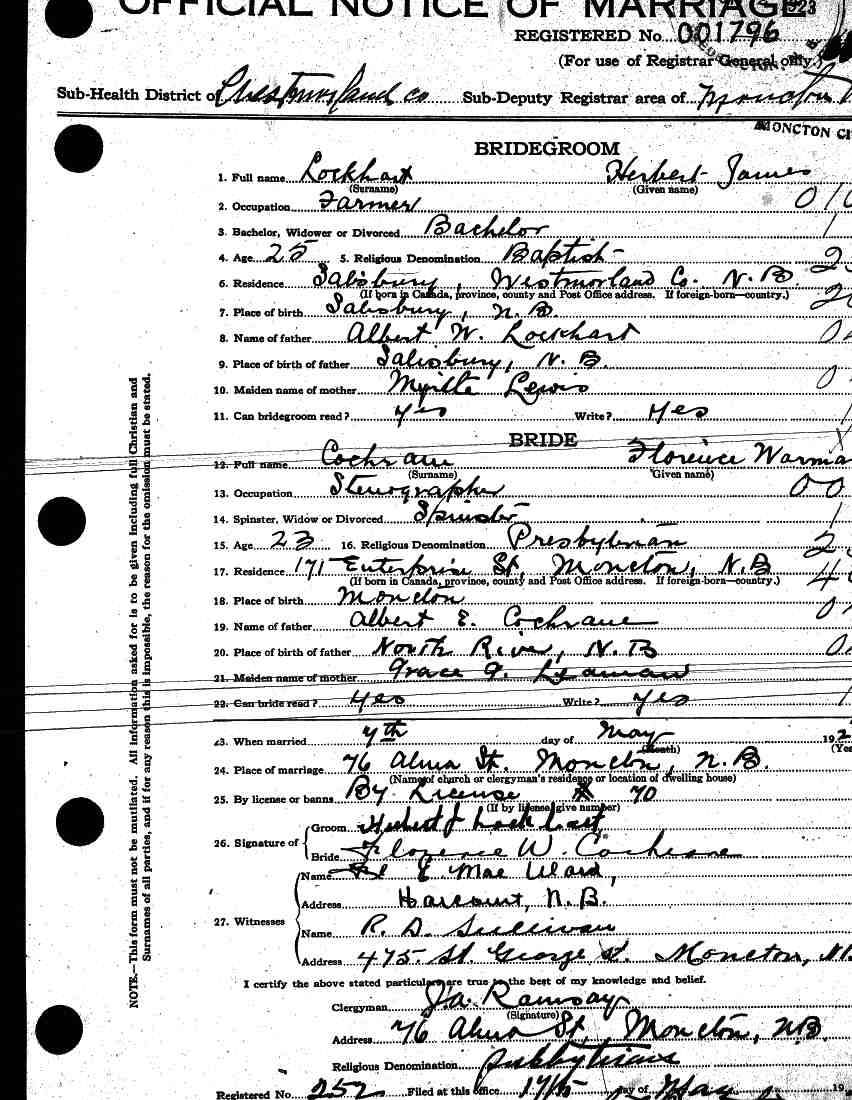 OFFICIAL NOTICE OF MARRIAGE
REGISTERED No. 001796
(For use of Registrar General only.)
Sub-Health District of Westmorland Co Sub-Deputy Registrar area of Moncton
MONCTON CI
BRIDEGROOM
1. Full name Lockhart Herbert James
(Surname) (Given name)
2. Occupation Farmer
3. Bachelor, Widower or Divorced Bachelor
4. Age 25 5. Religious Denomination Baptist
6. Residence Salisbury, Westmorland Co. N.B
(If born in Canada, province, county and Post Office address. If foreign-born—country.)
7. Place of birth Salisbury, N.B.
8. Name of father Albert W. Lockhart
9. Place of birth of father Salisbury, N.B.
10. Maiden name of mother Myrtle Lewis
11. Can bridegroom read? Yes Write? Yes
BRIDE
12. Full name Cochrane Florence Warma
(Surname) (Given name)
13. Occupation Stenographer
14. Spinster, Widow or Divorced Spinster
15. Age 23 16. Religious Denomination Presbyterian
17. Residence 171 Enterprise St, Moncton, N.B
(If born in Canada, province, county and Post Office address. If foreign-born—country.)
18. Place of birth Moncton
19. Name of father Albert E. Cochrane
20. Place of birth of father North River, N.B
21. Maiden name of mother Grace A. Lyaman
22. Can bride read? Yes Write? Yes
23. When married 4th day of May 192
(Month) (Yea
24. Place of marriage 76 Alma St. Moncton, N.B.
(Name of church or clergyman's residence or location of dwelling house)
25. By license or banns By License # 70
(If by license, give number)
26. Signature of Groom Herbert J Lockhart
Bride Florence W. Cochrane
27. Witnesses Name E. Mae Ward,
Address Harcourt, N.B.
Name R. D. Sullivan
Address 475 St. George St. Moncton, N.
I certify the above stated particulars are true to the best of my knowledge and belief.
Clergyman Ja. Ramsay
(Signature)
Address 76 Alma St, Moncton, N.B.
Religious Denomination
Registered No. 252 Filed at this office 17/5 day of May 19
NOTE.—This form must not be mutilated. All information asked for is to be given including full Christian and
Surnames of all parties, and if for any reason this is impossible, the reason for the omission must be stated.